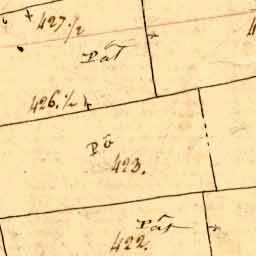 427.½
Pât
426.½
Pô
423.
Pât
422.